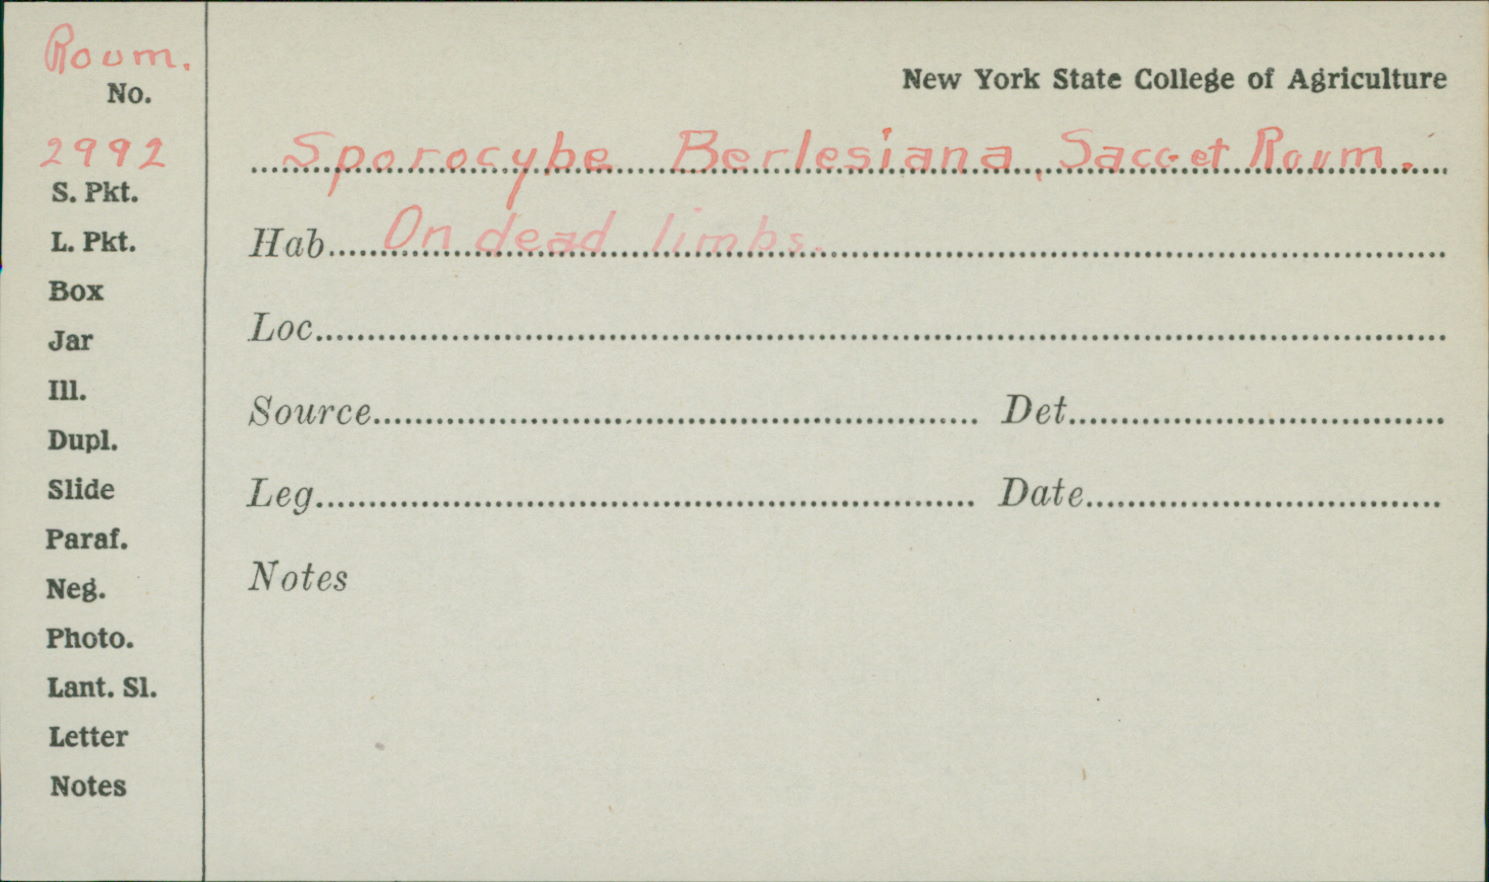 Roum.
No.
2992
S. Pkt.
L. Pkt.
Box
Jar
Ill.
Dupl.
Slide
Paraf.
Neg.
Photo.
Lant. Sl.
Letter
Notes
New York State College of Agriculture
Sporocybe Berlesiana, Sacc. et Roum.
Hab. On dead limbs.
Loc.
Source Det.
Leg. Date
Notes